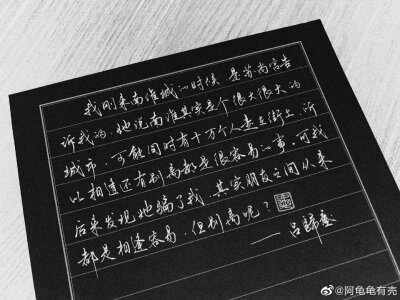 我刚来南淮城的时候是苏尚宫告
诉我的，她说南淮其实是个很大很大的
城市，可能同时有十万个人走在街上，所
以相逢还有别离都是很容易的事，可我
后来发现她骗了我，其实朋友之间从来
都是相逢容易，但别离呢？
——吕归尘
@阿龟龟有壳